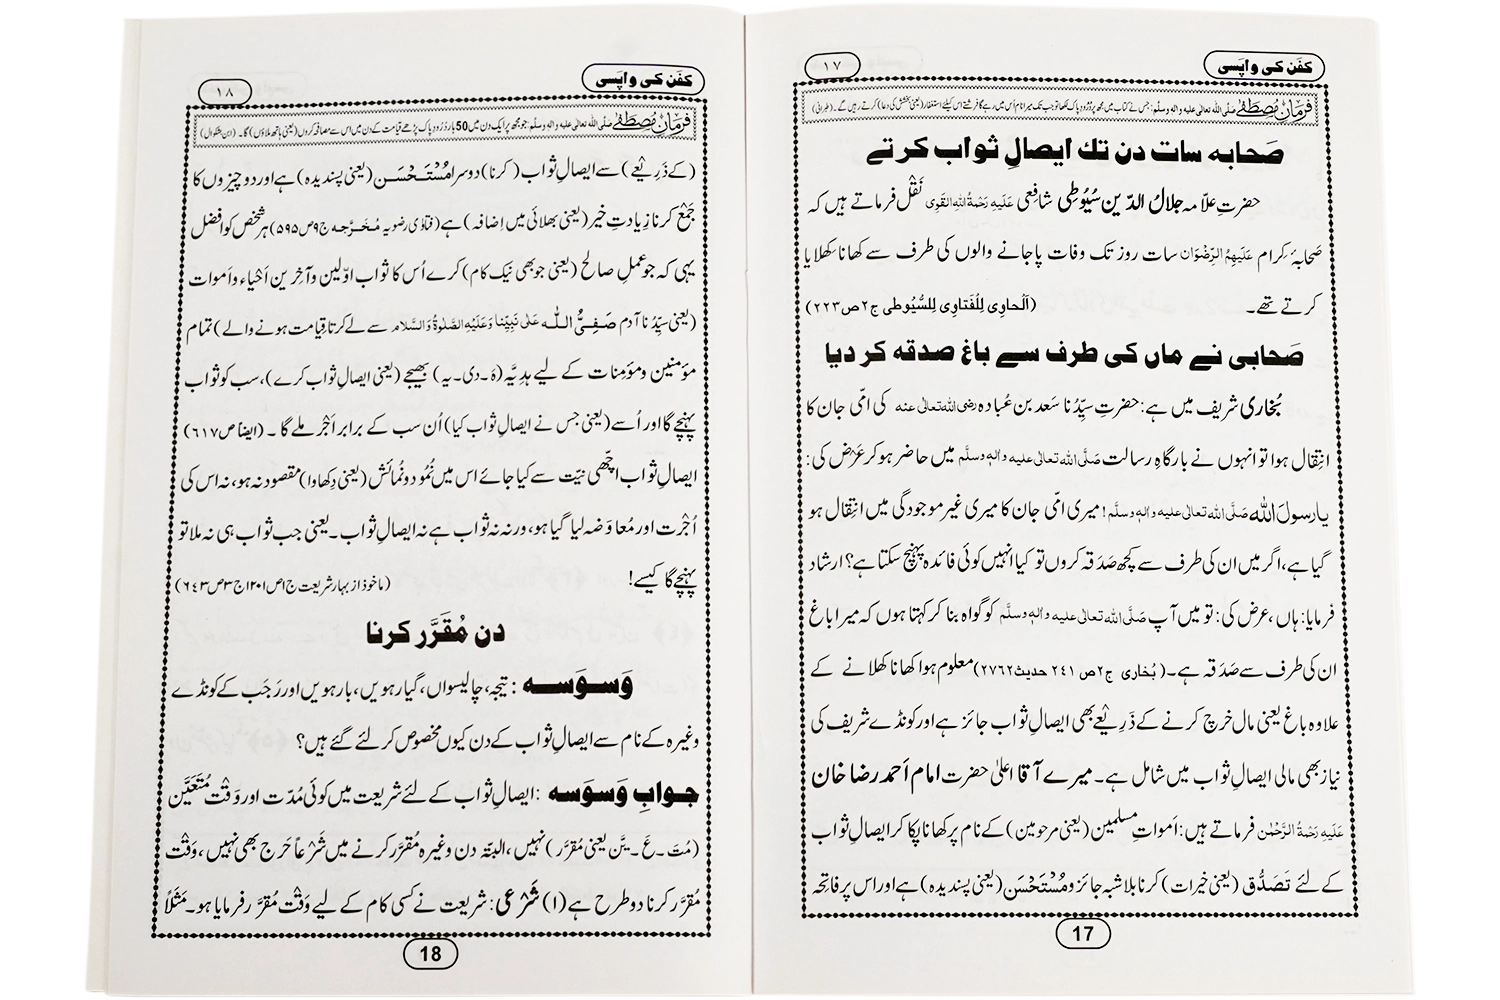 کفَن کی واپَسی
١٧
فرمانِ مصطفٰے صلَّی اللہ تعالٰی علیہ واٰلہٖ وسلَّم: جس نے کتاب میں مجھ پر دُرُودِ پاک لکھا تو جب تک میرا نام اُس میں رہے گا فرشتے اس کیلئے استغفار (یعنی بخشش کی دعا) کرتے رہیں گے۔ (طبرانی)
صَحابہ سات دن تك ایصالِ ثواب کرتے
حضرتِ علّامہ جلالُ الدّین سُیُوطِی شافِعی عَلَیْہِ رَحْمَۃُ اللّٰہِ الْقَوِی نَقْل فرماتے ہیں کہ
صَحابۂ کِرام عَلَیْہِمُ الرِّضْوَان سات روز تک وفات پا جانے والوں کی طرف سے کھانا کھلایا
کرتے تھے۔ (اَلْحاوِی لِلْفَتاوِی لِلسُّیُوطی ج٢ص٢٢٣)
صَحابی نے ماں کی طرف سے باغ صدقہ کر دیا
بُخاری شریف میں ہے: حضرتِ سیِّدُنا سَعد بن عُبادہ رضی اللہ تعالٰی عنہ کی امّی جان کا
انتِقال ہوا تو انہوں نے بارگاہِ رسالت صَلَّی اللہ تعالٰی علیہ واٰلہٖ وسلَّم میں حاضر ہو کر عَرْض کی:
یا رسولَ اللہ صَلَّی اللہ تعالٰی علیہ واٰلہٖ وسلَّم! میری امّی جان کا میری غیر موجودگی میں انتِقال ہو
گیا ہے، اگر میں ان کی طرف سے کچھ صَدَقہ کروں تو کیا انہیں کوئی فائدہ پہنچ سکتا ہے؟ ارشاد
فرمایا: ہاں، عرض کی: تو میں آپ صَلَّی اللہ تعالٰی علیہ واٰلہٖ وسلَّم کو گواہ بنا کر کہتا ہوں کہ میرا باغ
ان کی طرف سے صَدَقہ ہے۔ (بُخاری ج٢ص ٢٤١ حدیث٢٧٦٢) معلوم ہوا کھانا کھلانے کے
علاوہ باغ یعنی مال خرچ کرنے کے ذَرِیْعے بھی ایصالِ ثواب جائز ہے اور کونڈے شریف کی
نیاز بھی مالی ایصالِ ثواب میں شامل ہے۔ میرے آقا اعلیٰ حضرت امام اَحمد رضا خان
عَلَیْہِ رَحْمَۃُ الرَّحْمٰن فرماتے ہیں: اَمواتِ مسلمین (یعنی مرحومین) کے نام پر کھانا پکا کر ایصالِ ثواب
کے لئے تَصَدُّق (یعنی خیرات) کرنا بلا شبہ جائز و مُسْتَحْسَن (یعنی پسندیدہ) ہے اور اس پر فاتِحہ
17
کفَن کی واپَسی
١٨
فرمانِ مصطفٰے صلَّی اللہ تعالٰی علیہ واٰلہٖ وسلَّم: جو مجھ پر ایک دن میں 50 بار دُرُودِ پاک پڑھے قیامت کے دن میں اس سے مصافحہ کروں (یعنی ہاتھ ملاؤں) گا۔ (ابن بشکوال)
(کے ذَرِیْعے) سے ایصالِ ثواب (کرنا) دوسرا مُسْتَحْسَن (یعنی پسندیدہ) ہے اور دو چیزوں کا
جَمْع کرنا زِیادتِ خیر (یعنی بھلائی میں اِضافہ) ہے (فتاوٰی رضویہ مُخَرَّجہ ج٩ص٥٩٥) ہر شخص کو افضل
یہی کہ جو عملِ صالح (یعنی جو بھی نیک کام) کرے اُس کا ثواب اوّلین و آخِرین اَحْیاء و اَموات
(یعنی سیِّدُنا آدم صَفِیُّ اللّٰہ عَلٰی نَبِیِّنَا وَعَلَیْہِ الصَّلٰوۃُ وَالسَّلَام سے لے کر تا قِیامت ہونے والے) تمام
مؤمنین و مؤمِنات کے لیے ہدِیَّہ (ہَ۔دی۔یہ) بھیجے (یعنی ایصالِ ثواب کرے)، سب کو ثواب
پہنچے گا اور اُسے (یعنی جس نے ایصالِ ثواب کیا) اُن سب کے برابر اَجْر ملے گا۔ (ایضاً ص٦١٧)
ایصالِ ثواب اچّھی نیّت سے کیا جائے اس میں نُمُود و نُمائش (یعنی دِکھاوا) مقصود نہ ہو، نہ اس کی
اُجرت اور مُعاوَضہ لیا گیا ہو، ورنہ نہ ثواب ہے نہ ایصالِ ثواب۔ یعنی جب ثواب ہی نہ ملا تو
پہنچے گا کیسے! (ماخوذ از بہارِ شریعت ج١ص١٢٠١ج٣ص٦٤٣)
دن مُقَرَّر کرنا
وَسوَسہ: تیجہ، چالیسواں، گیارہویں، بارہویں اور رَجَب کے کونڈے
وغیرہ کے نام سے ایصالِ ثواب کے دن کیوں مخصوص کر لئے گئے ہیں؟
جوابِ وَسوَسہ: ایصالِ ثواب کے لئے شریعت میں کوئی مُدّت اور وَقت مُتَعَیَّن
(مُتَ۔عَ۔یَّن یعنی مُقرَّر) نہیں، البتّہ دن وغیرہ مُقرَّر کرنے میں شَرْعاً حَرَج بھی نہیں، وَقْت
مُقرَّر کرنا دو طرح ہے (١) شَرْعی: شریعت نے کسی کام کے لیے وَقْت مُقرَّر فرمایا ہو۔ مَثَلاً
18